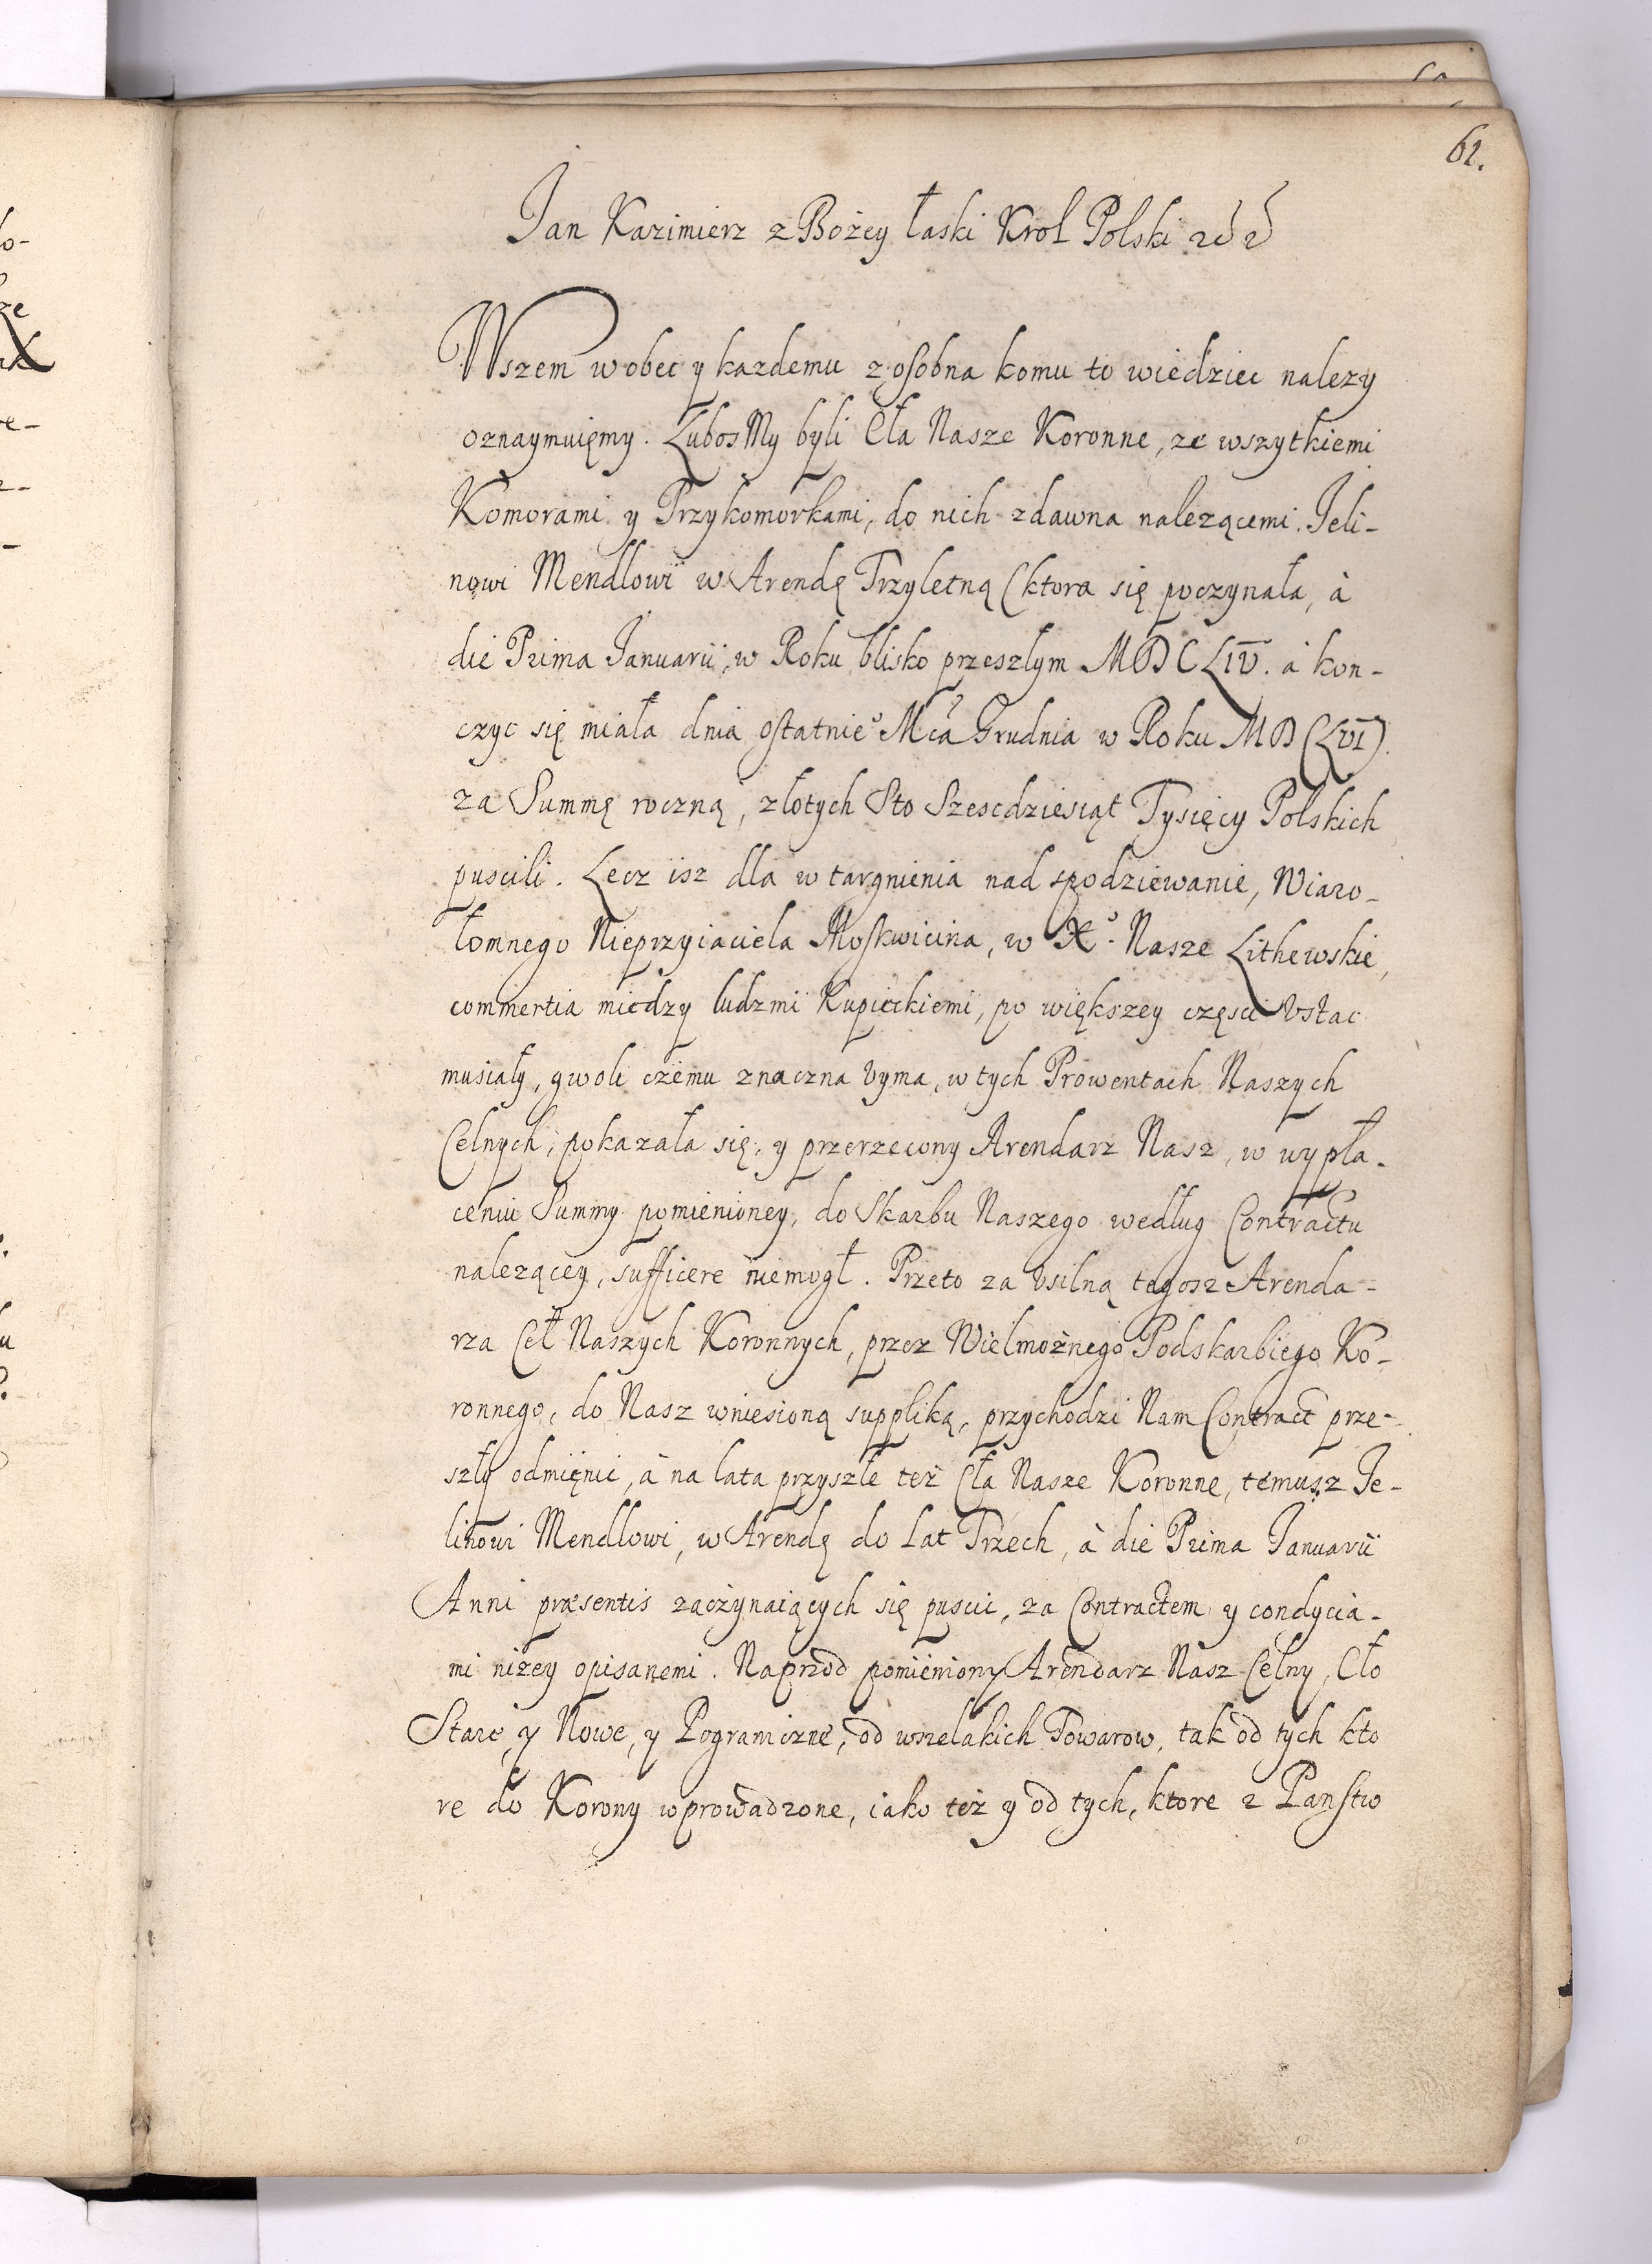 61.
Jan Kazimierz z Bożey łaski Krol Polski
Wszem wobec y kazdemu z osobna komu to wiedziec nalezy
oznaymuięmy. Lubos My byli Cła Nasze Koronne, ze wszytkiemi
Komorami y Przykomorkami, do nich zdawna nalezącemi. Jeli-
nowi Mendlowi w Arendę Trzyletną (ktora się poczynała, à
die Prima Januarii, w Roku blisko przeszłym MDCLIV. à kon-
czyc się miała dnia ostatnie° Mca Grudnia w Roku MDCLVI).
za Summę roczną, złotych Sto Szescdziesiąt Tysięcy Polskich
puscili. Lecz isz dla wtargnienia nad spodziewanie, Wiaro-
łomnego Nieprzyiaciela Moskwicina, w X°. Nasze Lithewskie,
commertia miedzy ludzmi Kupieckiemi, po większey częsci Vstac
musiały, gwoli czemu znaczna Vyma, w tych Prowentach Naszych
Celnych, pokazała się, y przerzeczony Arendarz Nasz, w wypła-
ceniu Summy pomienioney, do Skarbu Naszego według Contractu
nalezącey, sufficere niemogł. Przeto za Vsilną tegosz Arenda-
rza Ceł Naszych Koronnych, przez Wielmożnego Podskarbiego Ko-
ronnego, do Nasz wniesioną suppliką, przychodzi Nam Contract prze-
szły odmięnic, à na lata przyszłe też Cła Nasze Koronne, temusz Je-
linowi Mendlowi, w Arendę do Lat Trzech, à die Prima Januarii
Anni præsentis zaczynaiących się puscic, za Contractem y condycia-
mi niżey opisanemi. Naprzod pomieniony Arendarz Nasz Celny, Cło
Stare y Nowe, y Pograniczne, od wszelakich Towarow, tak od tych kto
re do Korony wprowadzone, iako też y od tych, ktore z Panstw